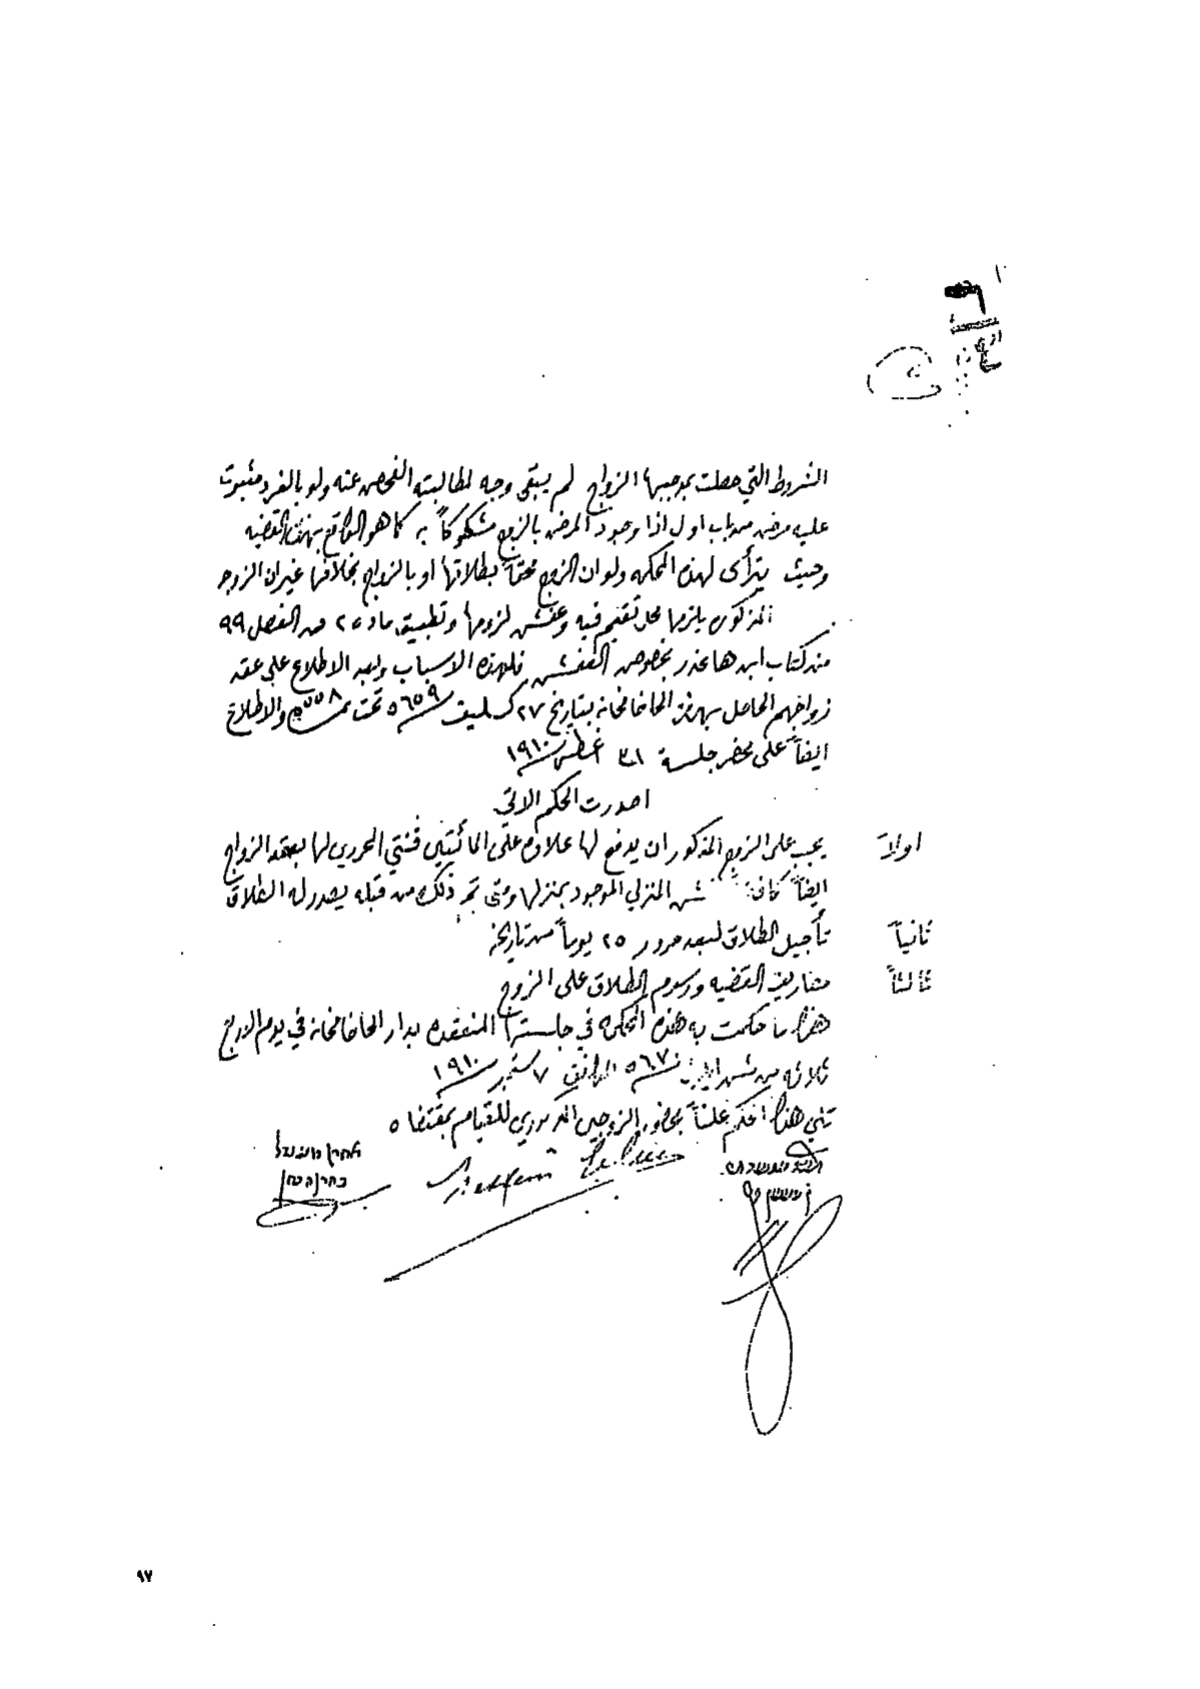 الشروط التي حصلت بموجبها الزواج لم يبقى وجه لمطالبته الفحص عنه ولو بالفرد مثبوت
عليه مرض من باب اولى اذا وجود المرض بالزوج مشكوكاً به كما هو الواقع بهذه القضيه
وحيث يترأى لهذه المحكمه ولو ان الزوج محقاً بطلاقها او بالزواج بخلافها غير ان الزوج
المذكور يلزمها محل تقيم فيه وعفش لزومها وتطبيق ماده ٢٥ من الفصل ٩٩
من كتاب ابن هاعذر بخصوص العفش فلهذه الاسباب وبعد الاطلاع على عقد
زواجهم الحاصل بهذه الحاخامخانه بتاريخ ٢٧ كسليف ٥٦٥٩ تحت نمرة ٥٥٨ والاطلاع
ايضاً على محضر جلسة ٣١ اغسطس ١٩١٠
اصدرت الحكم الاتي
اولاً يجب على الزوج المذكور ان يدفع لها علاوة على المائتين فنتي المحررين لها بعقد الزواج
ايضاً كافة المنزلي الموجود بمنزلها ومتى تم ذلك من قبله يصدر له الطلاق
ثانياً تأجيل الطلاق لبعد مرور ٢٥ يوماً من تاريخه
ثالثاً مصاريف القضيه ورسوم الطلاق على الزوج
هذا ما حكمت به هذه المحكمه في جلستها المنعقده بدار الحاخامخانه في يوم الاربع
ثلاثه من شهر ايلول ٥٦٧٠ الموافق ٧ سبتمبر ١٩١٠
تلي هذا الحكم علناً بحضور الزوجين المذكورين للقيام بمقتضاه
٩٧